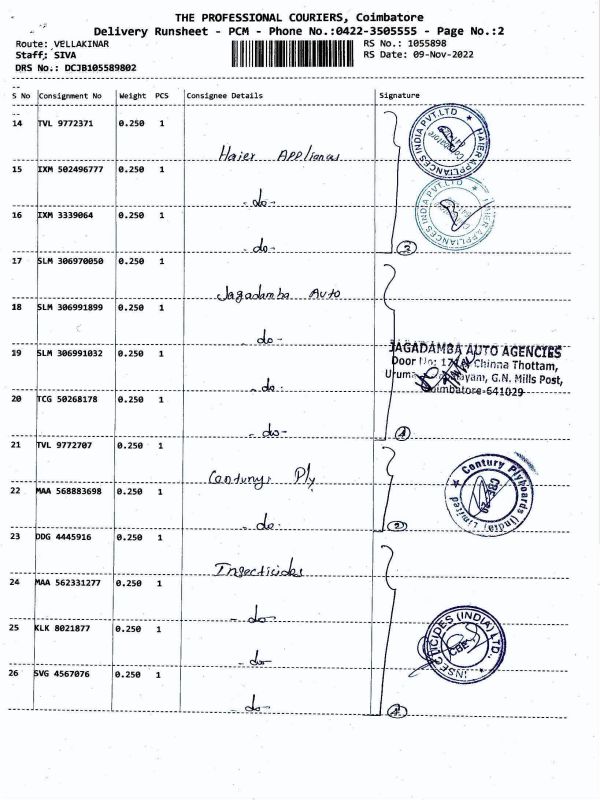 THE PROFESSIONAL COURIERS, Coimbatore
Delivery Runsheet - PCM - Phone No.:0422-3505555 - Page No.:2
Route: VELLAKINAR
RS No.: 1055898
Staff: SIVA
RS Date: 09-Nov-2022
DRS No.: DCJB105589802
S No Consignment No Weight PCS Consignee Details Signature
14 TVL 9772371 0.250 1 Haier Appliances
15 IXM 502496777 0.250 1 - do -
16 IXM 3339064 0.250 1 - do -
3
17 SLM 306970050 0.250 1 Jagadamba Auto
18 SLM 306991899 0.250 1 - do -
19 SLM 306991032 0.250 1 - do -
20 TCG 50268178 0.250 1 - do -
4
21 TVL 9772707 0.250 1 Century Ply
22 MAA 568883698 0.250 1 - do -
2
23 DDG 4445916 0.250 1 Insecticides
24 MAA 562331277 0.250 1 - do -
25 KLK 8021877 0.250 1 - do -
26 SVG 4567076 0.250 1 - do -
HAIER APPLIANCES INDIA PVT.LTD
HAIER APPLIANCES INDIA PVT.LTD
JAGADAMBA AUTO AGENCIES
Chinna Thottam,
G.N. Mills Post,
Coimbatore-641029
Century Plyboards (India) Limited
CBE-20
INSECTICIDES (INDIA) LTD.
CBE